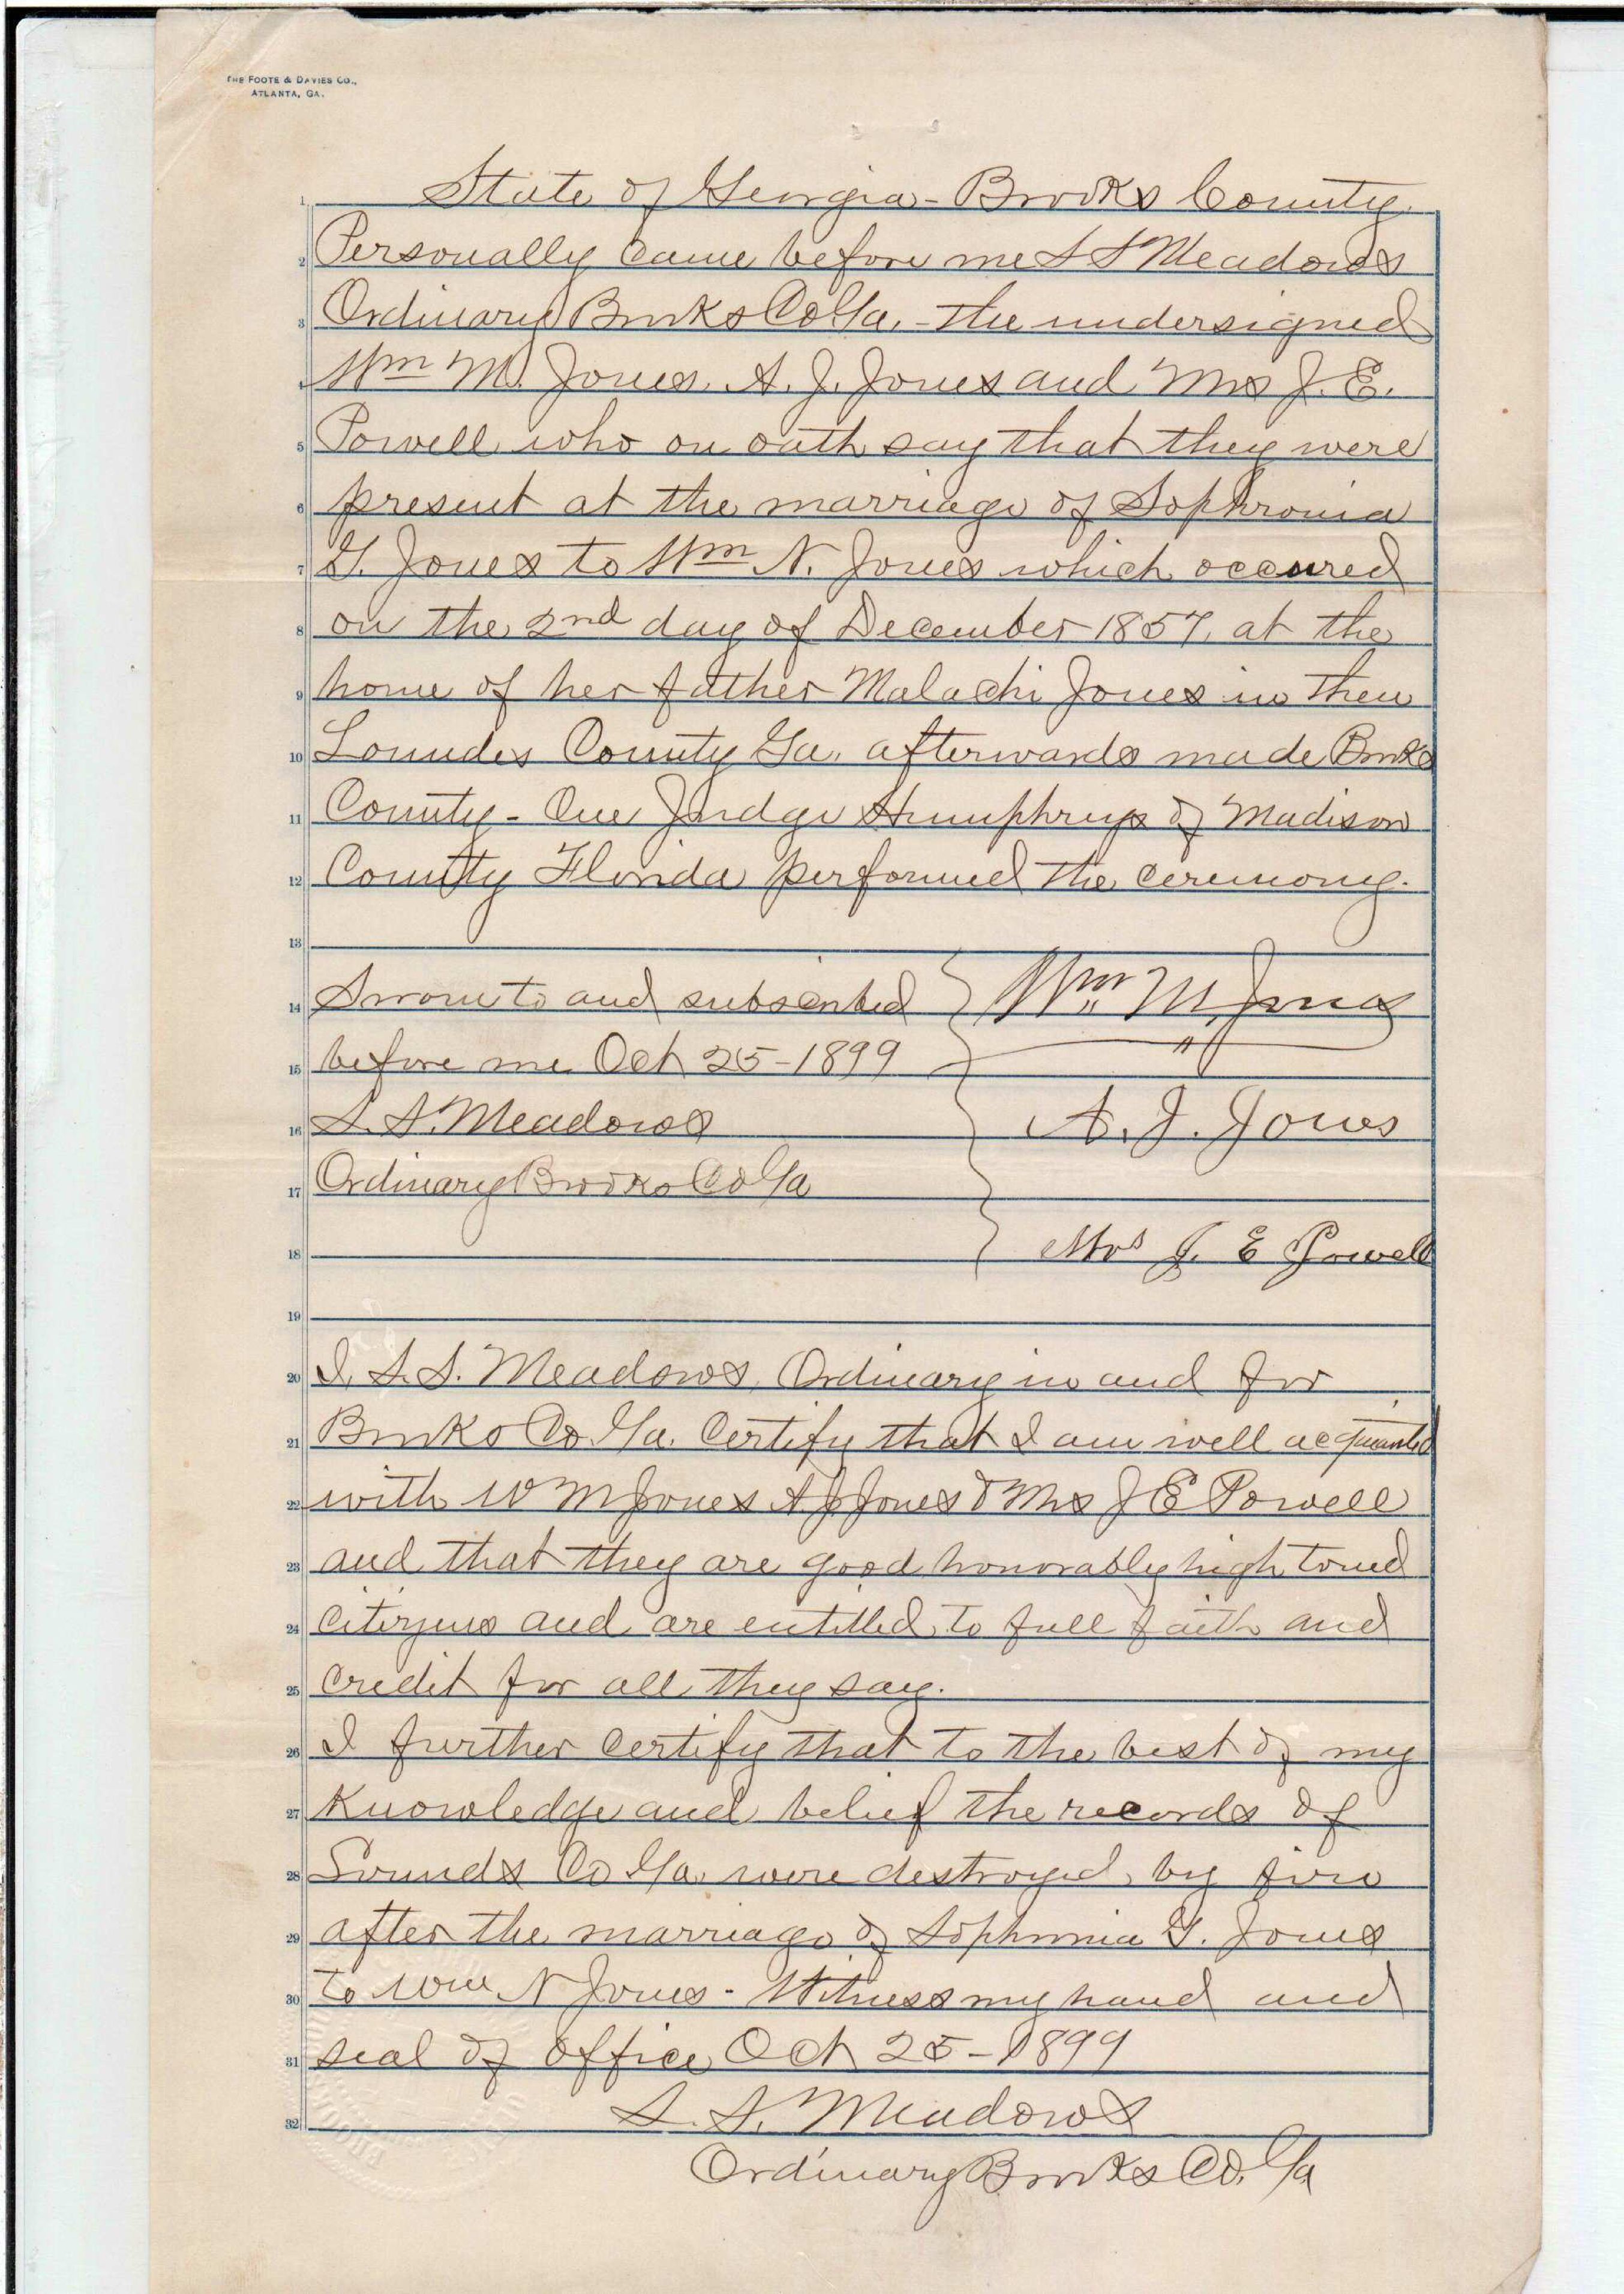 THE FOOTE & DAVIES CO.,
ATLANTA, GA.
State of Georgia - Brooks County.
Personally came before me S S Meadows
Ordinary Brooks Co Ga, - the undersigned
Wm M. Jones. A. J. Jones and Mrs J. E.
Powell who on oath say that they were
present at the marriage of Sophronia
G. Jones to Wm N. Jones which occured
on the 2nd day of December 1857, at the
home of her father Malachi Jones in then
Lowndes County Ga. afterwards made Brooks
County - One Judge Humphreys of Madison
County Florida performed the ceremony.
Sworn to and subscribed
before me Oct 25 - 1899
S. S. Meadows
Ordinary Brooks Co Ga
Wm M. Jones
A. J. Jones
Mrs J. E Powell
I, S. S. Meadows, Ordinary in and for
Brooks Co Ga. Certify that I am well acquainted
with W M Jones A J Jones & Mrs J E Powell
and that they are good honorably high toned
citizens and are entitled to full faith and
credit for all they say.
I further certify that to the best of my
Knowledge and belief the records of
Lownds Co Ga. were destroyed by fire
after the marriage of Sophronia G. Jones
to Wm N Jones - Witness my hand and
seal of office Oct 25 - 1899
S. S. Meadows
Ordinary Brooks Co. Ga
1
2
3
4
5
6
7
8
9
10
11
12
13
14
15
16
17
18
19
20
21
22
23
24
25
26
27
28
29
30
31
32